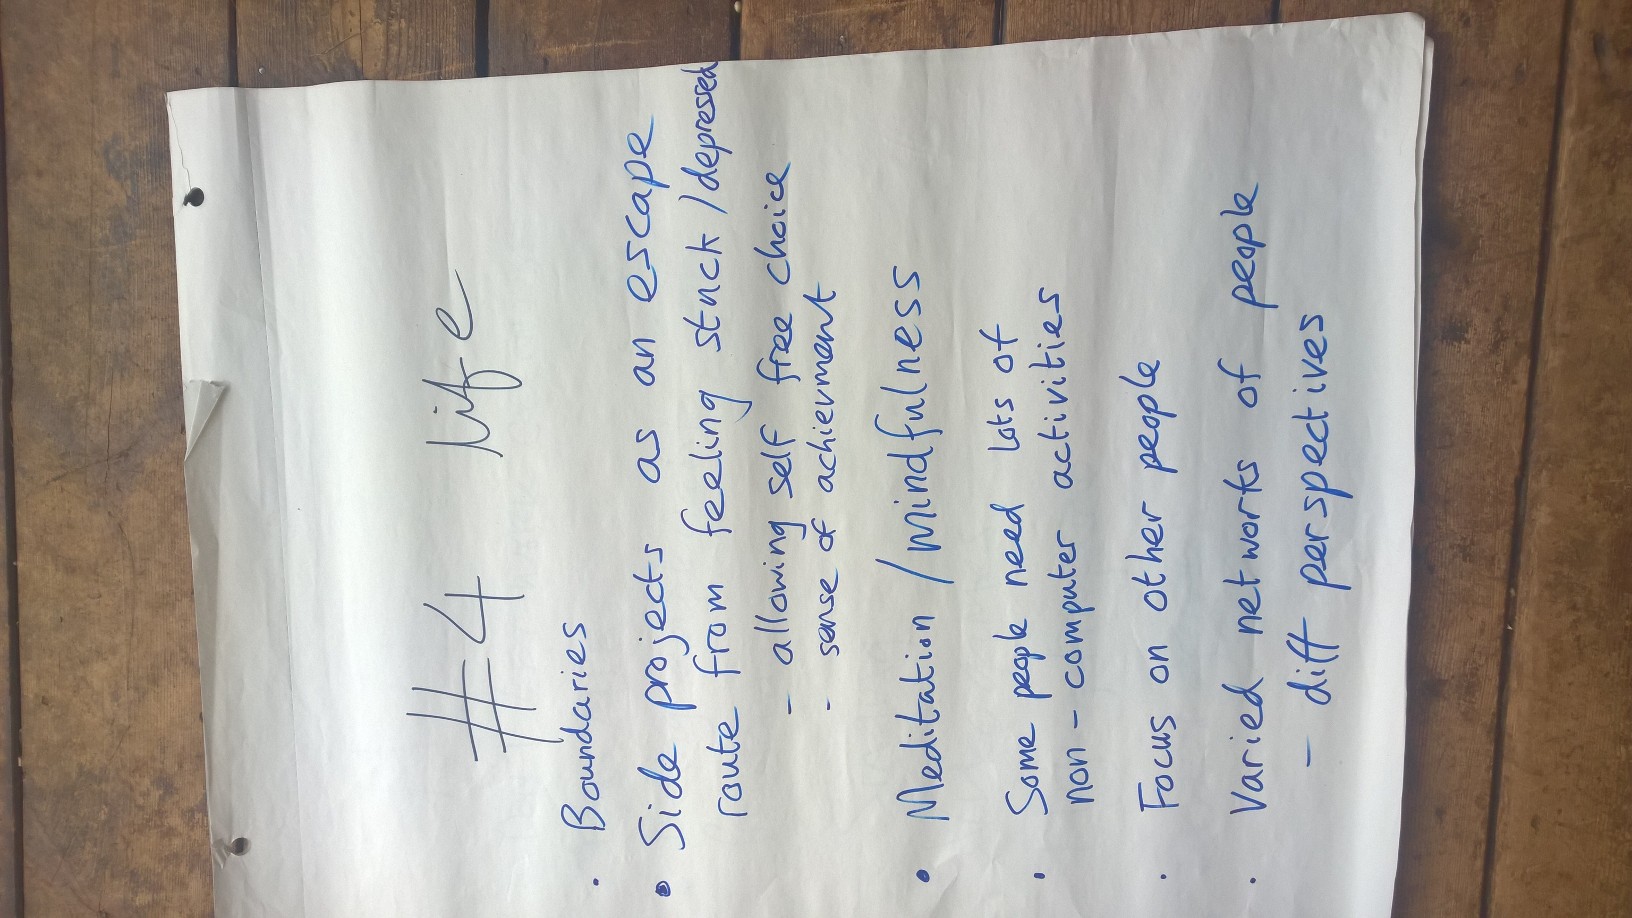 #4 life
• Boundaries
• Side projects as an escape
route from feeling stuck / depressed
- allowing self free choice
- sense of achievment
• Meditation / mindfulness
• Some people need lots of
non - computer activities
• Focus on other people
• Varied networks of people
- diff perspectives